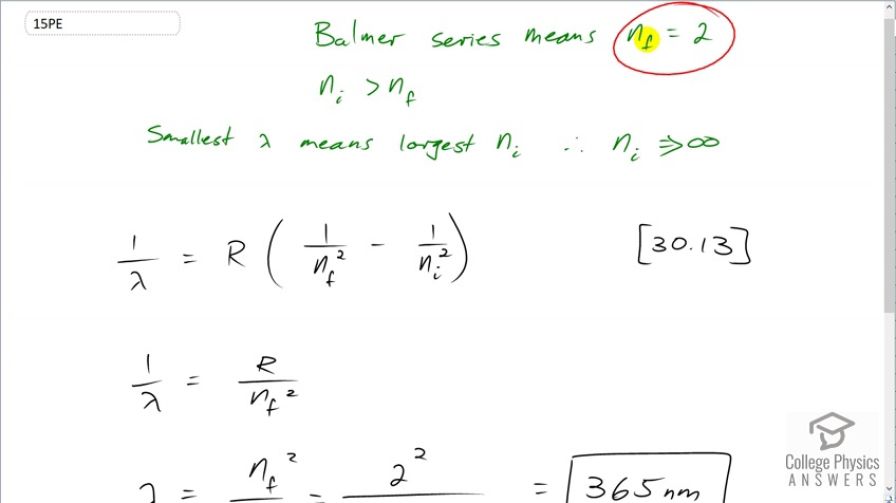 15PE
Balmer series means n_f = 2
n_i > n_f
Smallest λ means largest n_i ∴ n_i ⇒ ∞
1/λ = R ( 1/n_f² - 1/n_i² ) [30.13]
1/λ = R/n_f²
λ = n_f² = 2² = 365 nm
College Physics
ANSWERS